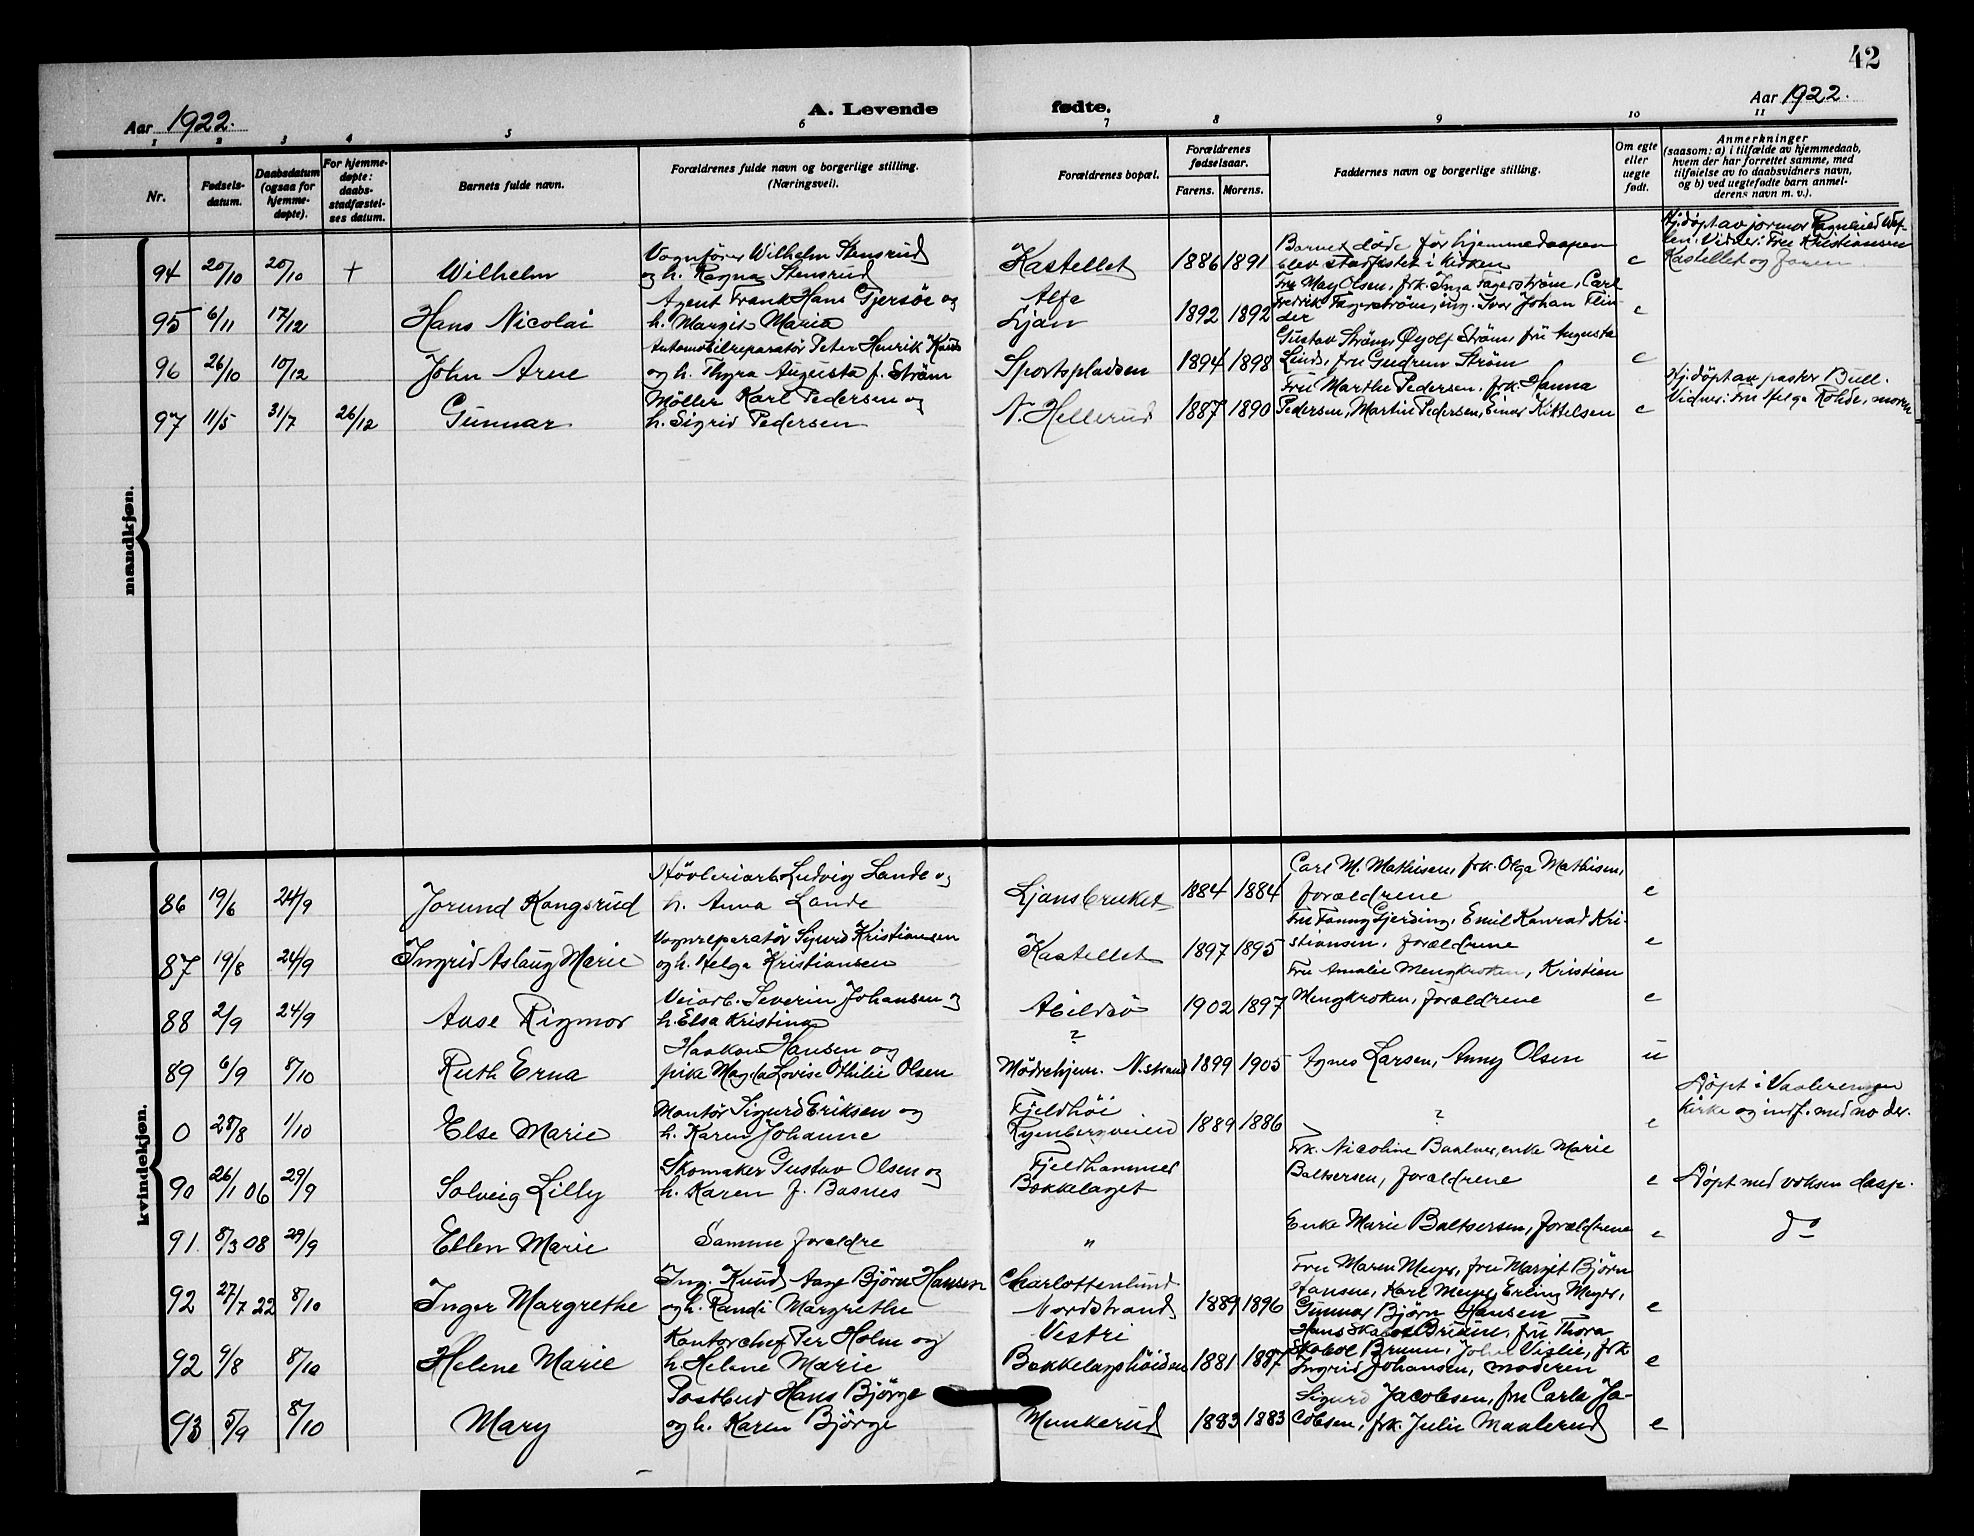 42
Aar 1922.
A. Levende fødte.
Aar 1922.
1 2 3 4 5 6 7 8 9 10 11
Nr.
Fødsels-
datum.
Daabsdatum
(ogsaa for
hjemme-
døpte).
For hjemme-
døpte:
daabs-
stadfæstel-
ses datum.
Barnets fulde navn.
Forældrenes fulde navn og borgerlige stilling.
(Næringsvei).
Forældrenes bopæl.
Forældrenes
fødselsaar.
Farens. Morens.
Faddernes navn og borgerlige stilling.
Om egte
eller
uegte
født.
Anmerkninger
(saasom: a) i tilfælde av hjemmedaab,
hvem der har forrettet samme, med
tilføielse av to daabsvidners navn,
og b) ved uegtefødte barn anmel-
derens navn m. v.).
mandkjøn.
94 20/10 20/10 + Wilhelm
Vognfører Wilhelm Stensrud
og h. Ragna Stensrud
Kastellet 1886 1891
Barnet døde før hjemmedaapen
blev stadfestet i kirken
e
Hj.døpt av jormor Ragnhild
Vidner: Fru Kristiansen
Kastellet og faren
95 6/11 17/12 Hans Nicolai
Agent Frank Hans Gjersøe og
h. Margit Maria
Alfa
Ljan 1892 1892
Fru May Olsen, frk. Inga Fagerstrøm, Carl
Fredrik Fagerstrøm, ing. Ivar Johan Flin-
der
e
96 26/10 10/12 John Arne
Automobilreparatør Peter Henrik
og h. Thyra Augusta f. Strøm
Sportspladsen 1894 1898
Gustav Strøm, Øyolf Strøm, fru Augusta
Lind, fru Gudrun Strøm
e
97 11/5 31/7 26/12 Gunnar
Møller Karl Pedersen og
h. Sigrid Pedersen
N. Hellerud 1887 1890
Fru Marthe Pedersen, frk. Hanna
Pedersen, Martin Pedersen, Einar Kittelsen
e
Hj.døpt av pastor Bull.
Vidner: Fru Helga Rohde, moren
kvindekjøn.
86 19/6 24/9 Jorund Kongsrud
Høvleriarb. Ludvig Lande og
h. Anna Lande
Ljansbruket 1884 1884
Carl M. Mathisen, frk. Olga Mathisen,
forældrene
e
87 19/8 24/9 Ingrid Aslaug Marie
Vognreparatør Sigurd Kristiansen
og h. Helga Kristiansen
Kastellet 1897 1895
Fru Fanny Gjerding, Emil Konrad Kri-
stiansen, forældrene
e
88 2/9 24/9 Aase Rigmor
Veiarb. Severin Johansen og
h. Elsa Kristina
Abildsø 1902 1897
Fru Amalie Mengkroken, Kristian
Mengkroken, forældrene
e
89 6/9 8/10 Ruth Erna
Haakon Hansen og
pike Magda Lovise Othilie Olsen
?
Mødrehjem. N.strand 1899 1905
Agnes Larsen, Anny Olsen
u
0 28/8 1/10 Else Marie
Montør Sigurd Eriksen og
h. Karen Johanne
Fjeldhöi
Rynbergveien 1889 1886
?
e
Døpt i Vaalerengen
kirke og indf. med no der.
90 26/1 06 29/9 Solveig Lilly
Skomaker Gustav Olsen og
h. Karen f. Basnes
Fjeldhammer
Bækkelaget
Frk. Nicoline Baalner, enke Marie
Baltsersen, forældrene
e
Døpt med voksen daap.
91. 8/3 08 29/9 Ellen Marie
Samme forældre
"
Enke Marie Baltsersen, forældrene
e
do
92 27/7 22 8/10 Inger Margrethe
Ing. Knud Aage Bjørn Hansen
og h. Randi Margrethe
Charlottenlund
Nordstrand 1889 1896
Fru Maren Meyer, fru Margit Bjørn
Hansen, Karl Meyer, Erling Meyer,
Gunnar Bjørn Hansen
e
92 9/8 8/10 Helene Marie
Kontorchef Per Holm og
h. Helene Marie
Vestri
Bækkelagshöiden 1881 1887
Hans Skabo Bruun, fru Thora
Skaboe Bruun, John Vislie, frk
Ingrid Johansen, moderen
e
93 5/9 8/10 Mary
Postbud Hans Bjørge
og h. Karen Bjørge
Munkerud 1883 1883
Sigurd Jacobsen, fru Carla Ja-
cobsen, frk. Julie Maalerud
e